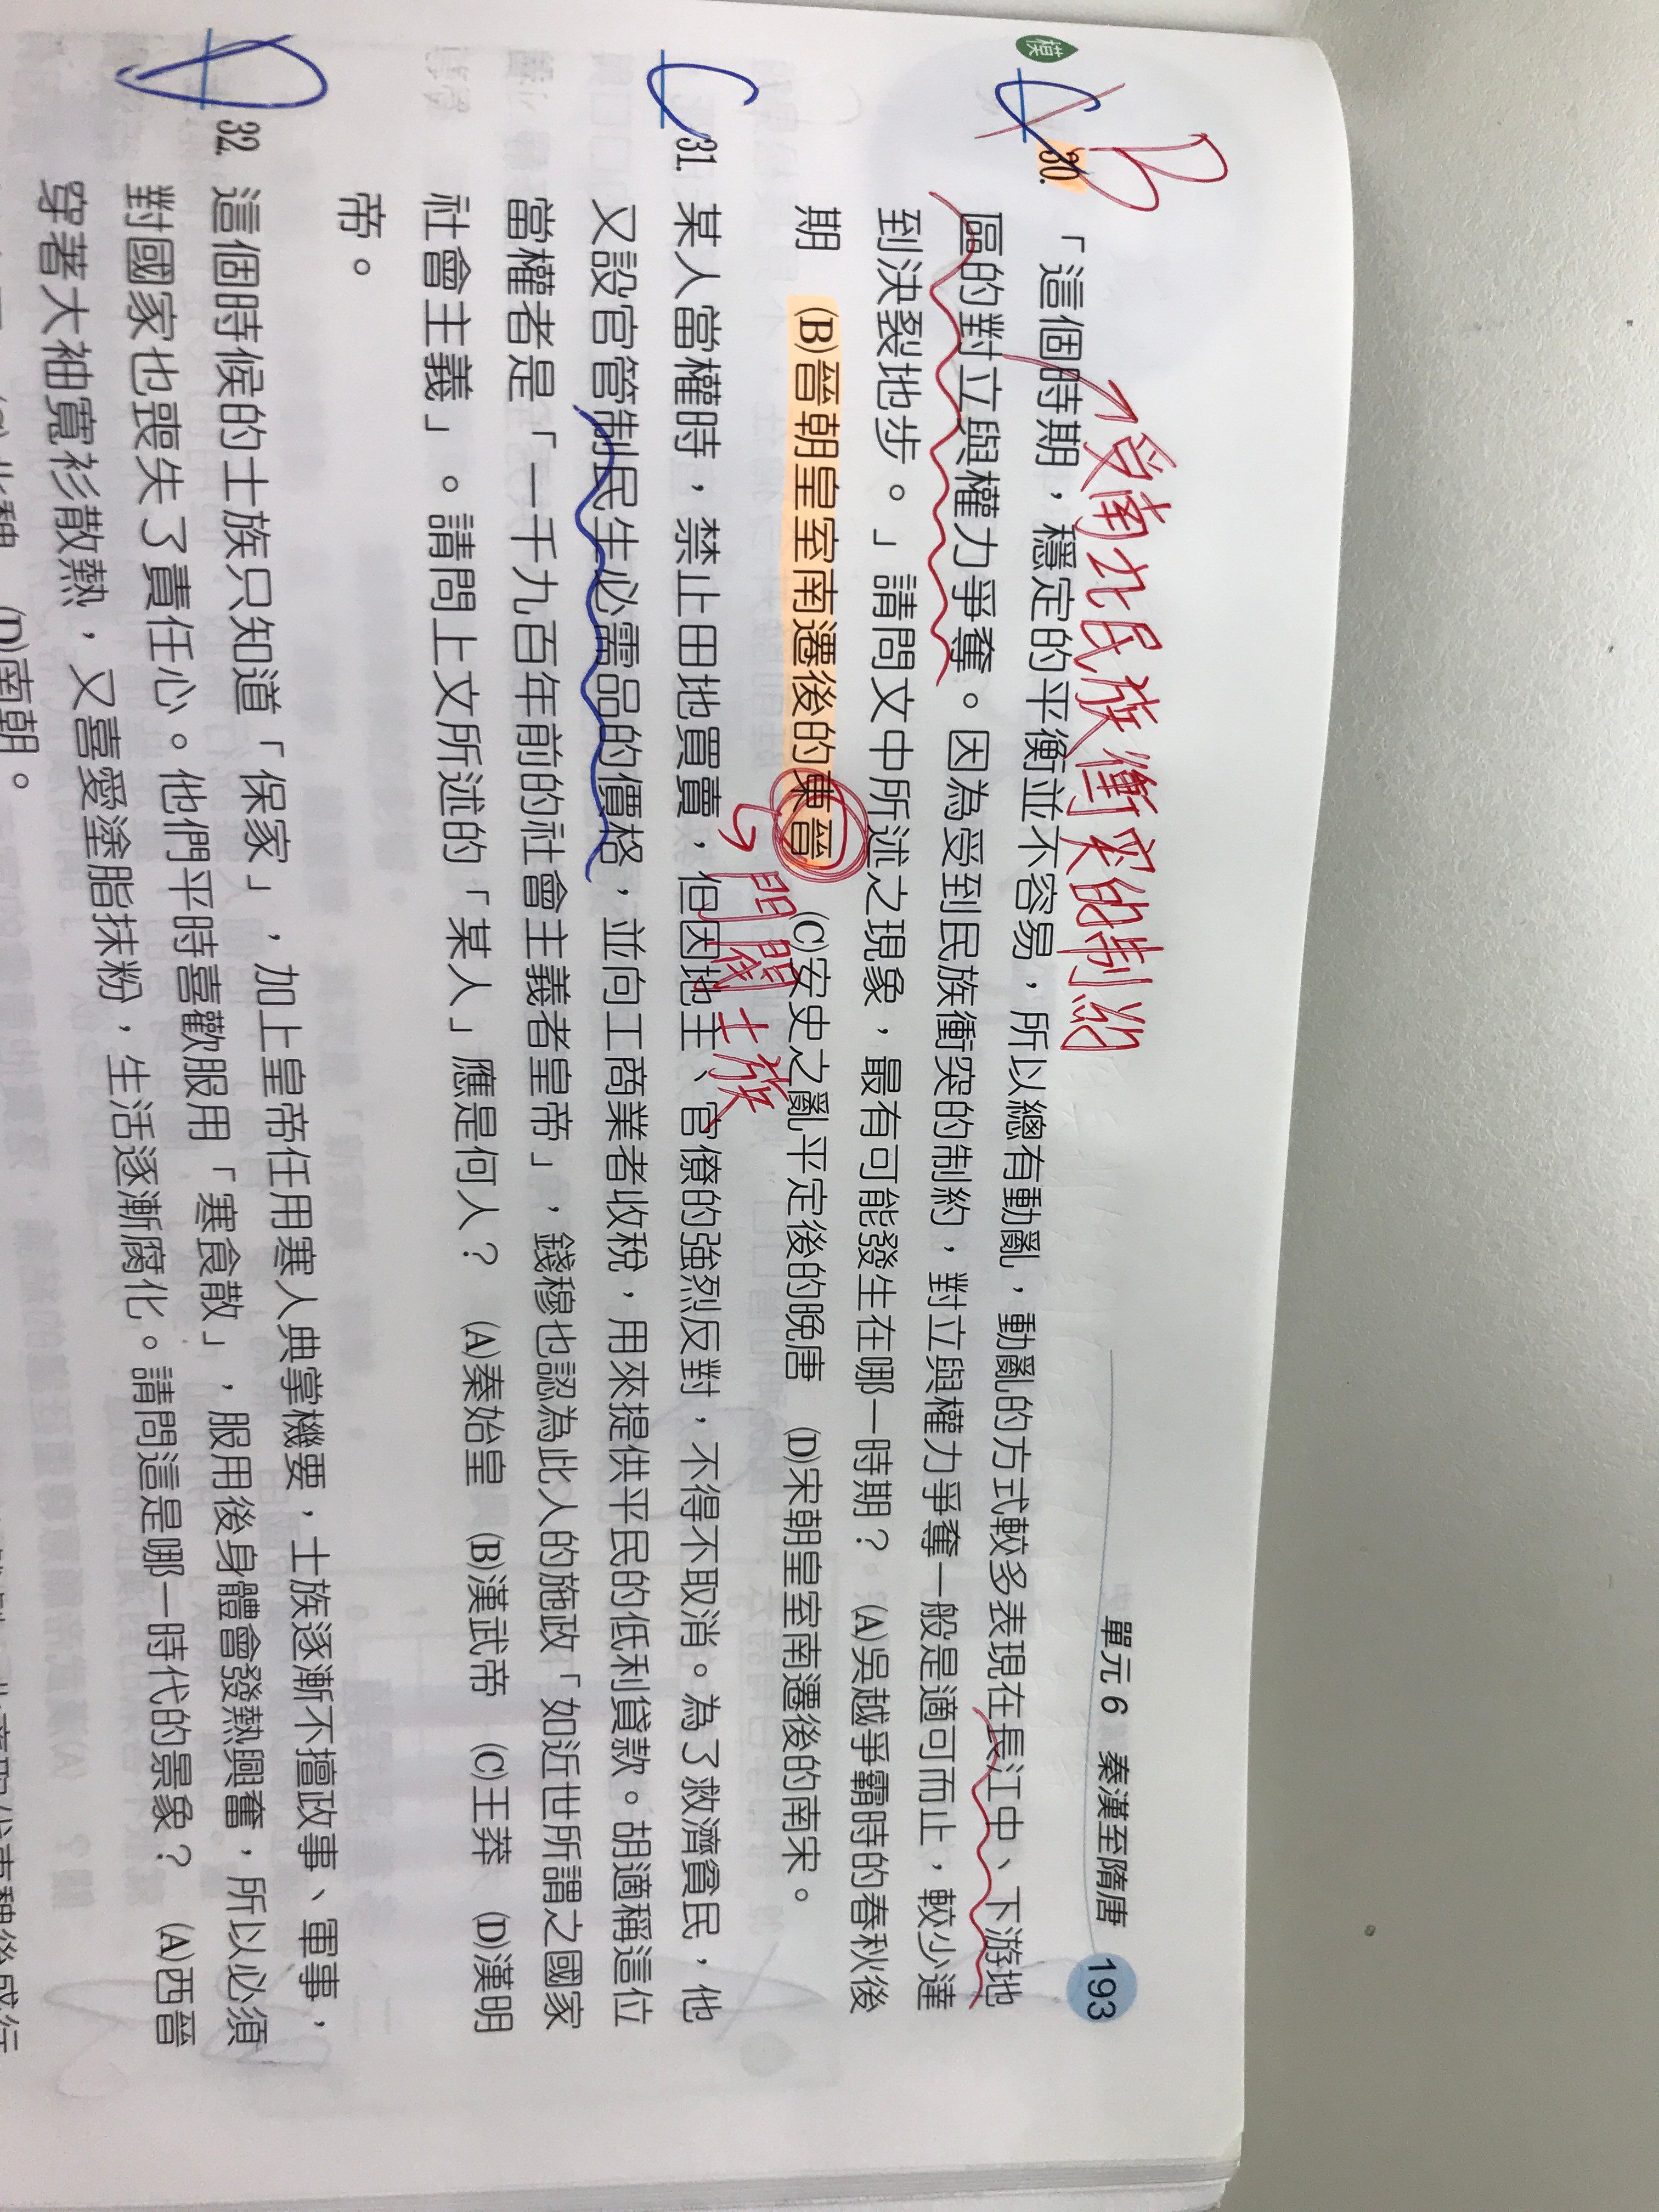 單元 6 秦漢至隋唐 193
→受南北民族衝突的制約
模 C B 30. 「這個時期，穩定的平衡並不容易，所以總有動亂，動亂的方式較多表現在長江中、下游地
區的對立與權力爭奪。因為受到民族衝突的制約，對立與權力爭奪一般是適可而止，較少達
到決裂地步。」請問文中所述之現象，最有可能發生在哪一時期？ (A)吳越爭霸時的春秋後
期 (B)晉朝皇室南遷後的東晉 (C)安史之亂平定後的晚唐 (D)宋朝皇室南遷後的南宋。
門閥士族
C 31. 某人當權時，禁止田地買賣，但因地主、官僚的強烈反對，不得不取消。為了救濟貧民，他
又設官管制民生必需品的價格，並向工商業者收稅，用來提供平民的低利貸款。胡適稱這位
當權者是「一千九百年前的社會主義者皇帝」，錢穆也認為此人的施政「如近世所謂之國家
社會主義」。請問上文所述的「某人」應是何人？ (A)秦始皇 (B)漢武帝 (C)王莽 (D)漢明
帝。
D 32. 這個時候的士族只知道「保家」，加上皇帝任用寒人典掌機要，士族逐漸不擅政事、軍事，
對國家也喪失了責任心。他們平時喜歡服用「寒食散」，服用後身體會發熱興奮，所以必須
穿著大袖寬衫散熱，又喜愛塗脂抹粉，生活逐漸腐化。請問這是哪一時代的景象？ (A)西晉
(C)北魏 (D)南朝。